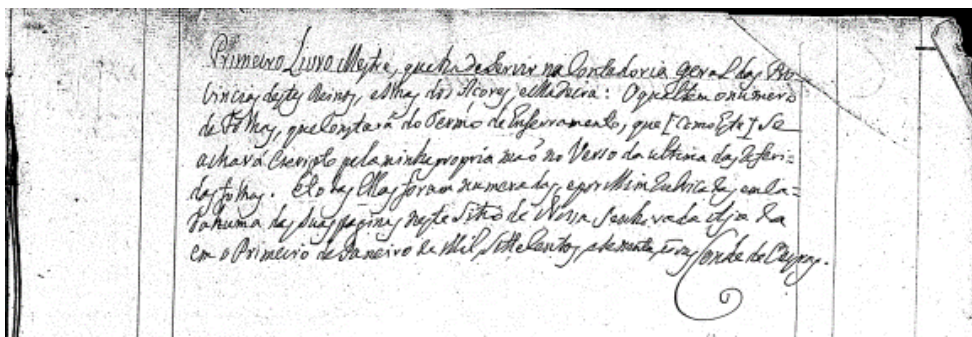 Primeiro Livro Mestre, que ha de Servir na Contadoria Geral das Pro
vincias destes Reinos, e Ilhas dos Açores, e Madeira: O qual tem o numero
de Folhas, que Constará do Termo de Enserramento, que [Como Este] Se
achará Escripto pela minha propria maõ no Verso da ultima das Referi=
das folhas. E todas Ellas foram numeradas, e por Mim Rubricadas em Ca=
da huma das suas paginas neste Sitio de Nossa Senhora da Ajuda
em o Primeiro de Janeiro de Mil, Sette Centos, e Sessenta, e tres Conde de Oeyras.